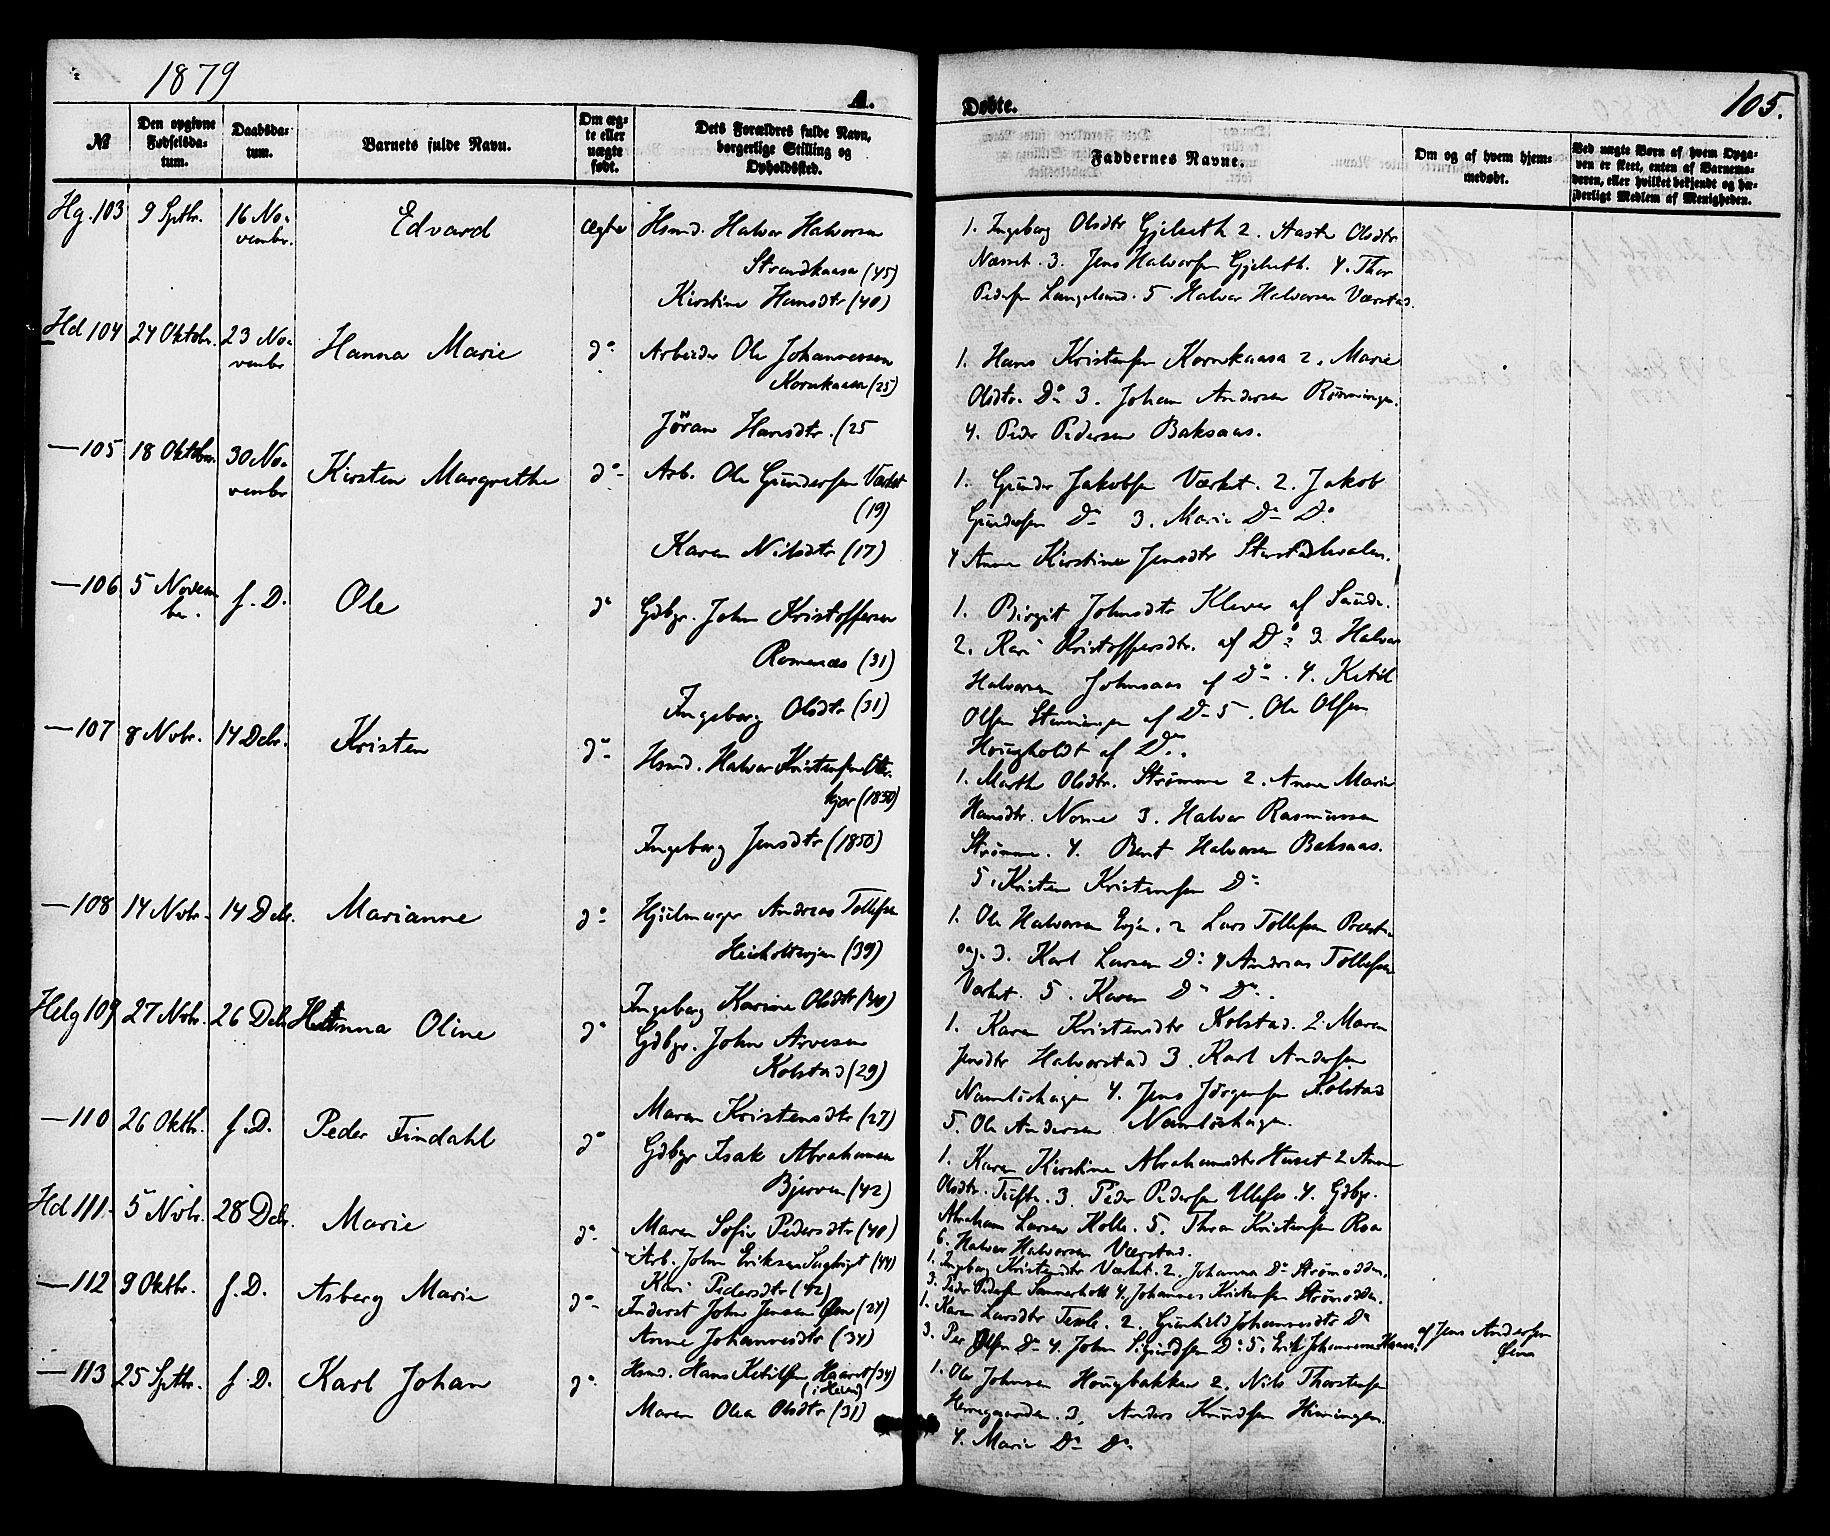 1879
A.
Døbte.
105.
№
Den opgivne Fødselsdatum.
Daabsdatum.
Barnets fulde Navn.
Om ægte eller uægte født.
Dets Forældres fulde Navn, borgerlige Stilling og Opholdssted.
Faddernes Navne.
Om og af hvem hjemmedøbt.
Ved uægte Børn af hvem Opgaven er skeet, enten af Barnemoderen, eller hvilket bekjendt og hæderligt Medlem af Menigheden.
Hg. 103 9 Sptbr. 16 November. Edvard ægte Hsmd. Halvor Halvorsen
Strandkaasa (45)
Kirstine Hansdtr (40)
1. Ingeborg Olsdtr Gjelseth 2. Aaste Olsdtr
Næsset. 3. Jens Halvorsen Gjelseth. 4. Thor
Pedersen Langelund. 5. Halvor Halvorsen Værstad.
Hd 104 24 Oktobr. 23 November Hanna Marie do Arbeider Ole Johannessen
Kornkaasa (25)
Jøran Hansdtr. (25
1. Hans Kristensen Kornkaasa 2. Marie
Olsdtr. Do 3. Johan Andersen Rønningen.
4. Peder Pedersen Baksaas.
— 105 18 Oktober 30 November Kirsten Margrethe do Arb. Ole Gundersen Værket
(19)
Karen Nilsdtr (17)
1. Gunder Jakobsen Værket. 2. Jakob
Gundersen Do 3. Marie Do Do.
4 Anne Kirstine Jensdtr
— 106 5 November. f. D. Ole do Gdbgr. John Kristoffersen
Romenæs (31)
Ingeborg Olsdtr (31)
1. Birgit Johnsdtr Klever af Saude.
2. Kari Kristoffersdtr. af Do 3. Halvor
Halvorsen Johnsaas af Do. 4. Ketil
Olsen af Do 5. Ole Olsen
Hougholdt af Do.
— 107 8 Novbr. 14 Debr. Kristen do Hsmd. Halvor Kristensen
(1850)
Ingeborg Jensdtr (1850)
1. Marthe Olsdtr. Strømme 2. Anne Marie
Hansdtr. Nome 3. Halvor Rasmussen
Strømme. 4. Bent Halvorsen Baksaas.
5. Kristen Kristensen Do
— 108 14 Nvbr. 14 Debr. Marianne do Hjulmager Andreas Tollefsen
(39)
Ingeborg Karine Olsdtr (40)
1. Ole Halvorsen Eijen. 2 Lars Tollefsen
3. Karl Larsen Do 4 Andreas Tollefsen
Værket. 5. Karen Do Do.
Helg 109 27 Nvbr. 26 Debr Hanna Oline do Gdbgr. John Arvesen
Kolstad (29)
Maren Kristensdtr (27)
1. Karen Kristensdtr Kolstad. 2. Maren
Jensdtr Halvorstad 3. Karl Andersen
Namløshagen 4. Jens Jørgensen Kolstad
5. Ole Andersen Namløshagen.
— 110 26 Oktbr. f. D. Peder Findahl do Gdbgr Isak Abrahamsen
Bjerven (42)
Maren Sofie Pedersdtr (40)
1. Karen Kirstine Abrahamsdtr Huset 2 Anne
Olsdtr. Tufte. 3. Peder Pedersen Ulefos. 4. Gdbgr.
Abraham Larsen Holla. 5. Thron Kristensen Roa
6. Halvor Halvorsen Værstad.
Hd 111. 5 Nvbr. 28 Debr. Marie do Arb. John Eriksen (44)
Kari Pedersdtr (42)
1. Ingeborg Kristensdtr Værket. 2. Johanna Do Strømodden.
3. Peder Pedersen Sannerholt 4. Johannes Kristensen Strømodden.
— 112 9 Oktbr. f. D. Asberg Marie do Inderst John Jensen Øen (24)
Anne Johannesdtr (34)
1. Karen Larsdtr 2. Gunhild Johannesdtr Do
3. Per Olsen Do 4. John Sigurdsen Do 5. Erik Johannessen
af Jens Andersen
Øen
— 113 25 Sptbr. f. D. Karl Johan do Hsmd. Hans Ketilsen Haaret (34)
Maren Olea Olsdtr (31)
1. Ole Johnsen Hougbakken 2. Nils Thorstensen
Herregaarden. 3. Anders Knudsen Hinningen.
4. Marie Do Do.